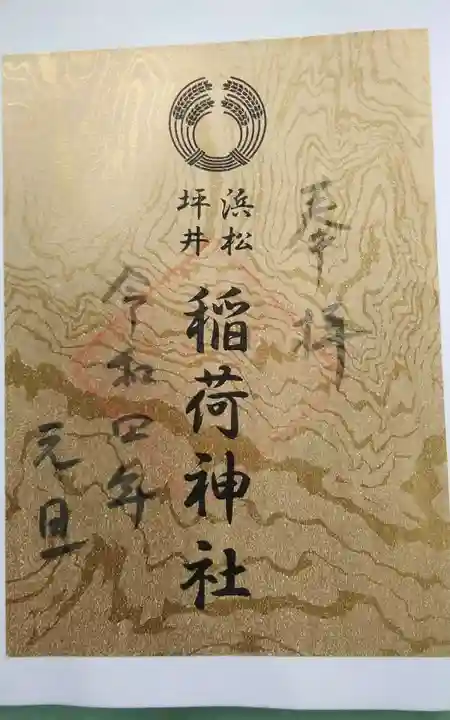 奉拝
浜松
坪井
稲荷神社
令和四年
元旦